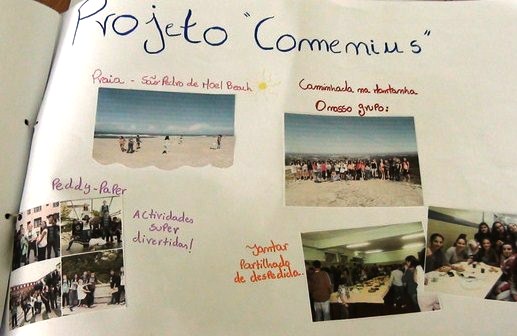 Projeto "Comenius"
Praia - São Pedro de Moel Beach
Caminhada na Montanha
O nosso grupo:
Peddy-Paper
Actividades
super
divertidas!
Jantar
Partilhado
de despedida...